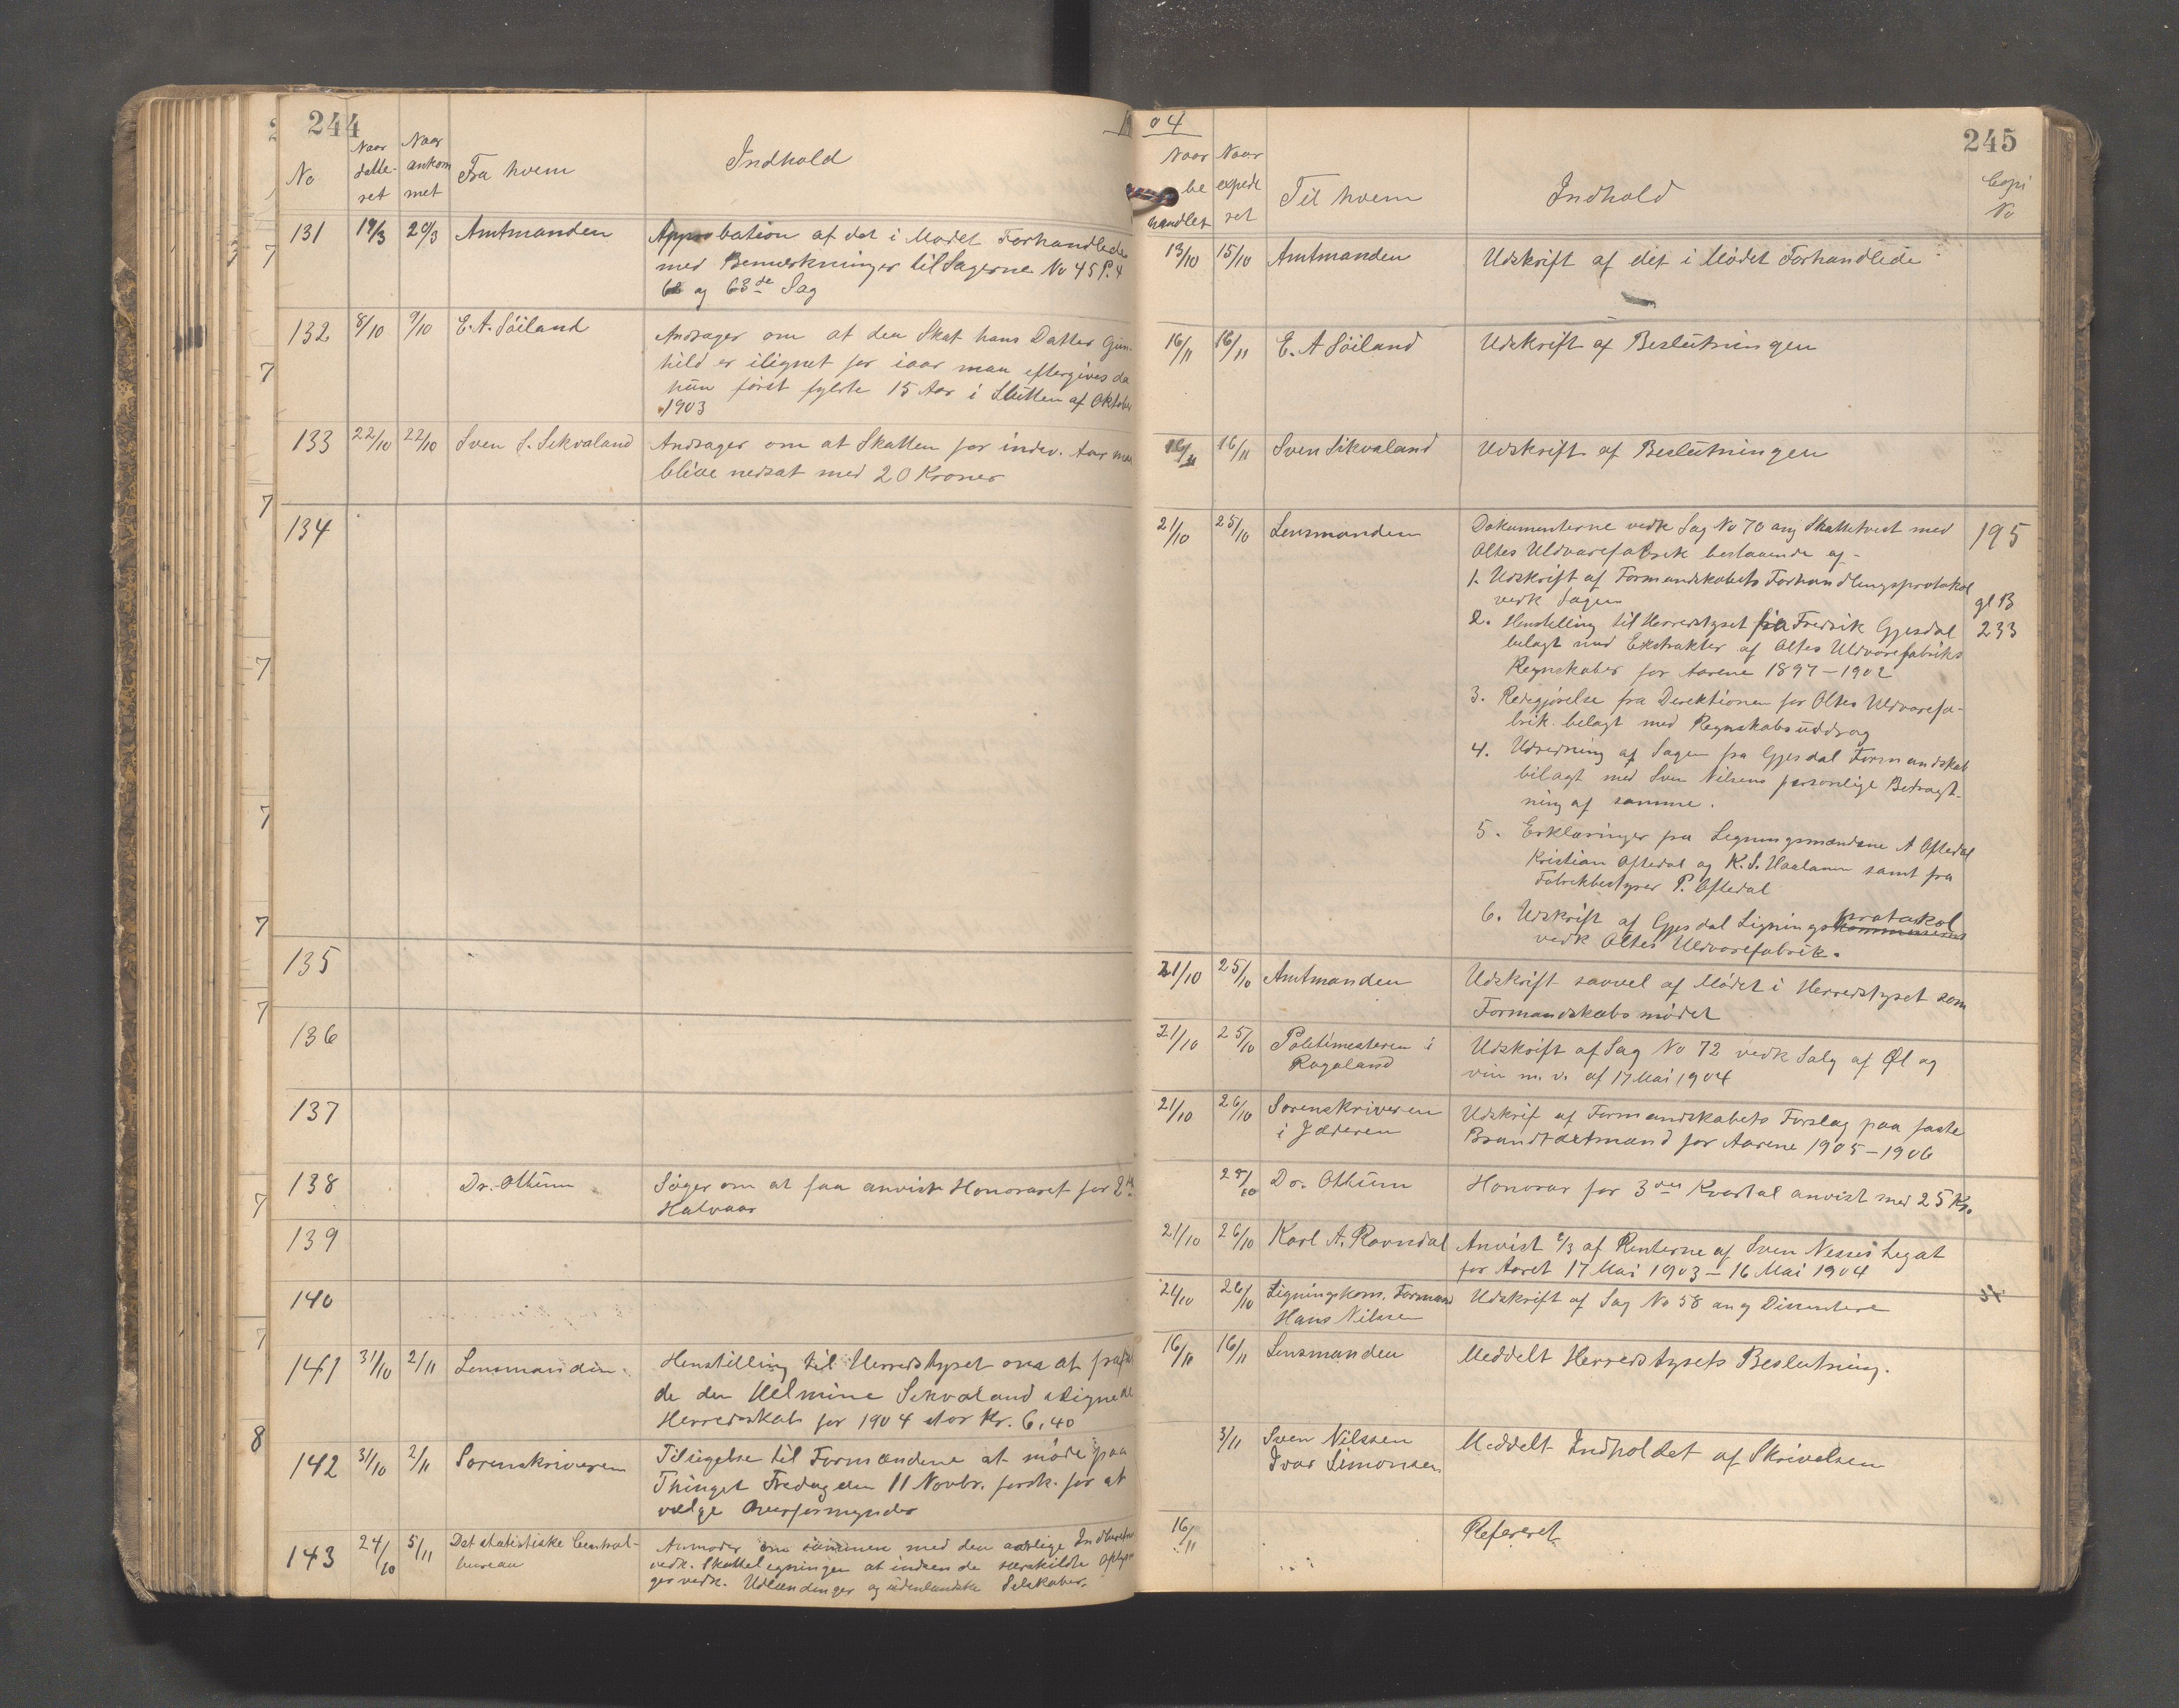 244
1904
No
Naar datte-ret
Naar ankommet
Fra hvem
Indhold
131 19/3 20/3 Amtmanden
Approbation af det i Mødet Forhandlede
med Bemærkninger til Sagerne No 45 P. 4
62 og 63de Sag
132 8/10 9/10 E. A. Söiland
Andrager om at den Skat hans Datter Gun-
hild er ilignet for iaar maa eftergives da
hun först fyldte 15 Aar i Slutten af Oktober
1903
133 22/10 22/10 Sven S. Sikvaland
Andrager om at Skatten for indev. Aar maa
blive nedsat med 20 Kroner
134
135
136
137
138 Dr. Othum
Söger om at faa anvist Honoraret for 2det
Halvaar
139
140
141 31/10 2/11 Lensmanden
Henstilling til Herredstyret om at frafal
de den Helmine Sikvaland ilignede
Herredsskat for 1904 stor Kr. 6,40
142 31/10 2/11 Sorenskriveren
Tilsigelse til Formændene at möde paa
Thinget Fredag den 11 Novbr. förstk. for at
vælge Overformynder
143 24/10 5/11 Det statistiske Central-
bureau
Anmoder om sammen med den aarlige Indberetn
vedk. Skatteligningen at indsende særskildte Oplysn
ger vedk. Udlændinger og udenlandske Selskaber.
245
Naar behandlet
Naar expederet
Til hvem
Indhold
Copi No
13/10 15/10 Amtmanden
Udskrift af det i Mödet Forhandlede
16/11 16/11 E. A Söiland
Udskrift af Beslutningen
16/11 16/11 Sven Sikvaland
Udskrift af Beslutningen
21/10 25/10 Lensmanden
Dokumenterne vedk Sag No 70 ang Skattetvist med 195
Oltes Uldvarefabrik bestaaende af -
1. Udskrift af Formandskabets Forhandlingsprotokol
vedk Sagen gl B
2. Henstilling til Herredstyret fra Fredrik Gjesdal 233
belagt med Ekstrakter af Oltes Uldvarefabriks
Regnskaber for Aarene 1897 - 1902
3. Redegjörelse fra Direktionen for Oltes Uldvarefa-
brik belagt med Regnskabsuddrag
4. Udredning af Sagen fra Gjesdal Formandskab
bilagt med Sven Nilsens personlige Betragt-
ning af samme.
5. Erklæringer fra Ligningsmændene A Oftedal
Kristian Oftedal og K. S. Haaland samt fra
Fabrikbestyrer P. Oftedal
6. Udskrift af Gjesdal Lignings protokol
vedk Oltes Uldvarefabrik.
21/10 25/10 Amtmanden
Udskrift saavel af Mödet i Herredstyret som
Formandskabs mödet
21/10 25/10 Politimesteren i
Rogaland
Udskrift af Sag No 72 vedk Salg af Øl og
vin m. v. af 17 Mai 1904
21/10 26/10 Sorenskriveren
i Jæderen
Udskrif af Formandskabets Forslag paa faste
Brandtaxtmænd for Aarene 1905 - 1906
25/10 Dr. Othum
Honorar for 3die Kvartal anvist med 25 Kr.
21/10 26/10 Karl A. Ravndal
Anvist 2/3 af Renterne af Sven Nesses Legat
for Aaret 17 Mai 1903 - 16 Mai 1904
21/10 26/10 Ligningskom. Formand
Hans Nilssen
Udskrift af Sag No 58 ang Dissentere
16/11 16/11 Lensmanden
Meddelt Herredstyrets Beslutning.
3/11 Sven Nilssen
Ivar Simonsen
Meddelt Indholdet af Skrivelsen
16/11
Refereret